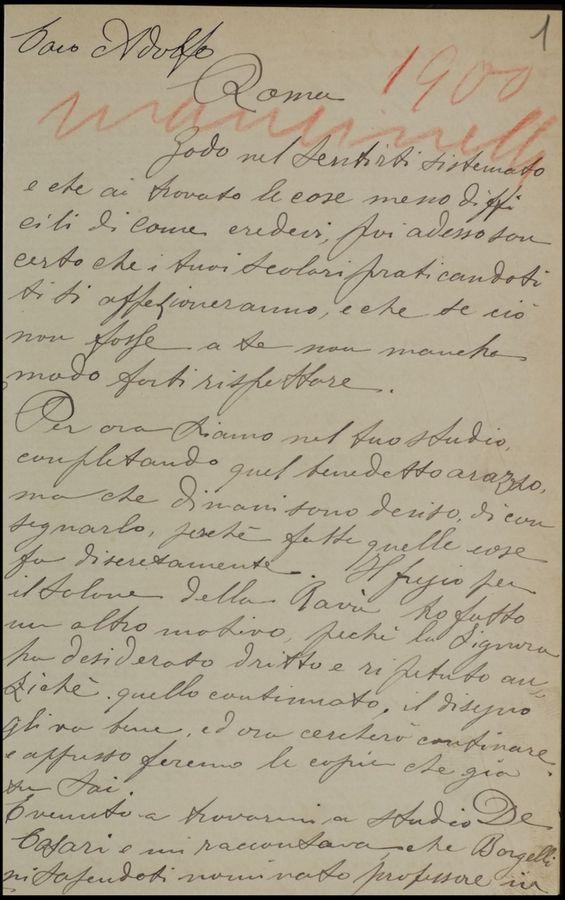 1
Caro Adolfo
1900
Roma
mancinelli
Godo nel sentirti sistemato
e che ai trovato le cose meno diffi
cili di come credevi, poi adesso son
certo che i tuoi scolari praticandoti
ti si affezioneranno, e che se ciò
non fosse a te non manche
modo farti rispettare.
Per ora siamo nel tuo studio,
completando quel benedetto arazzo,
ma che dimani sono deciso, di con
segnarlo, perchè fatte quelle cose
fa discretamente. Il fregio per
il salone della Ravà ho fatto
un altro motivo, pechè la Signora
ha desiderato dritto e ripetuto an
zichè quello continuato, il disegno
gli va bene, ed ora cercherò continare
e appresso faremo le copie che già
tu sai.
È venuto a trovarmi a studio De
Casari e mi raccontava che Borgelli
sapendoti nominato professore in